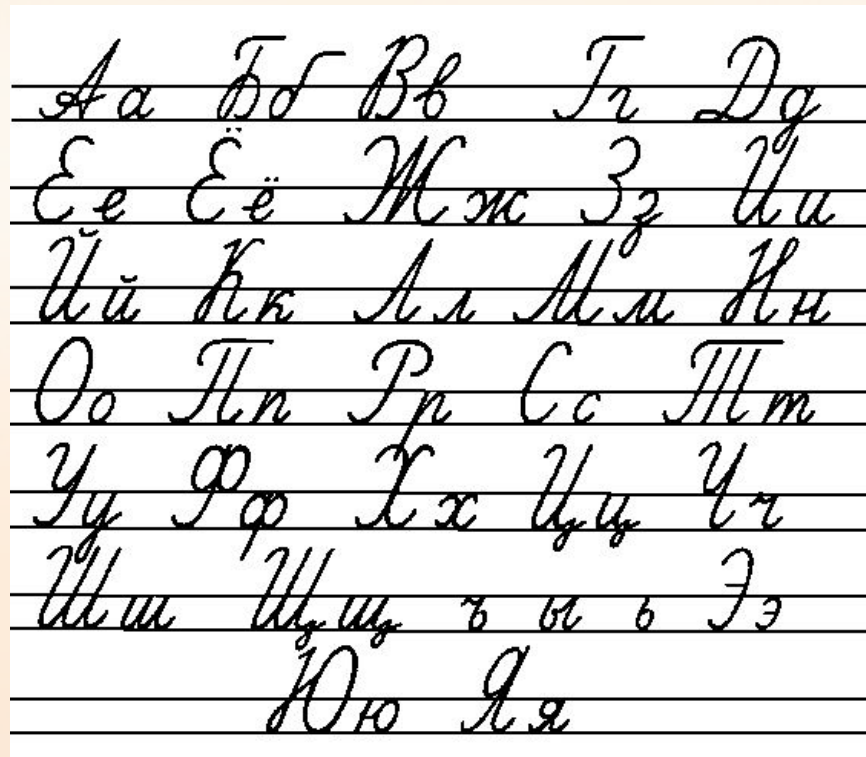 Аа Бб Вв Гг Дд
Ее Ёё Жж Зз Ии
Йй Кк Лл Мм Нн
Оо Пп Рр Сс Тт
Уу Фф Хх Цц Чч
Шш Щщ ъ ы ь Ээ
Юю Яя